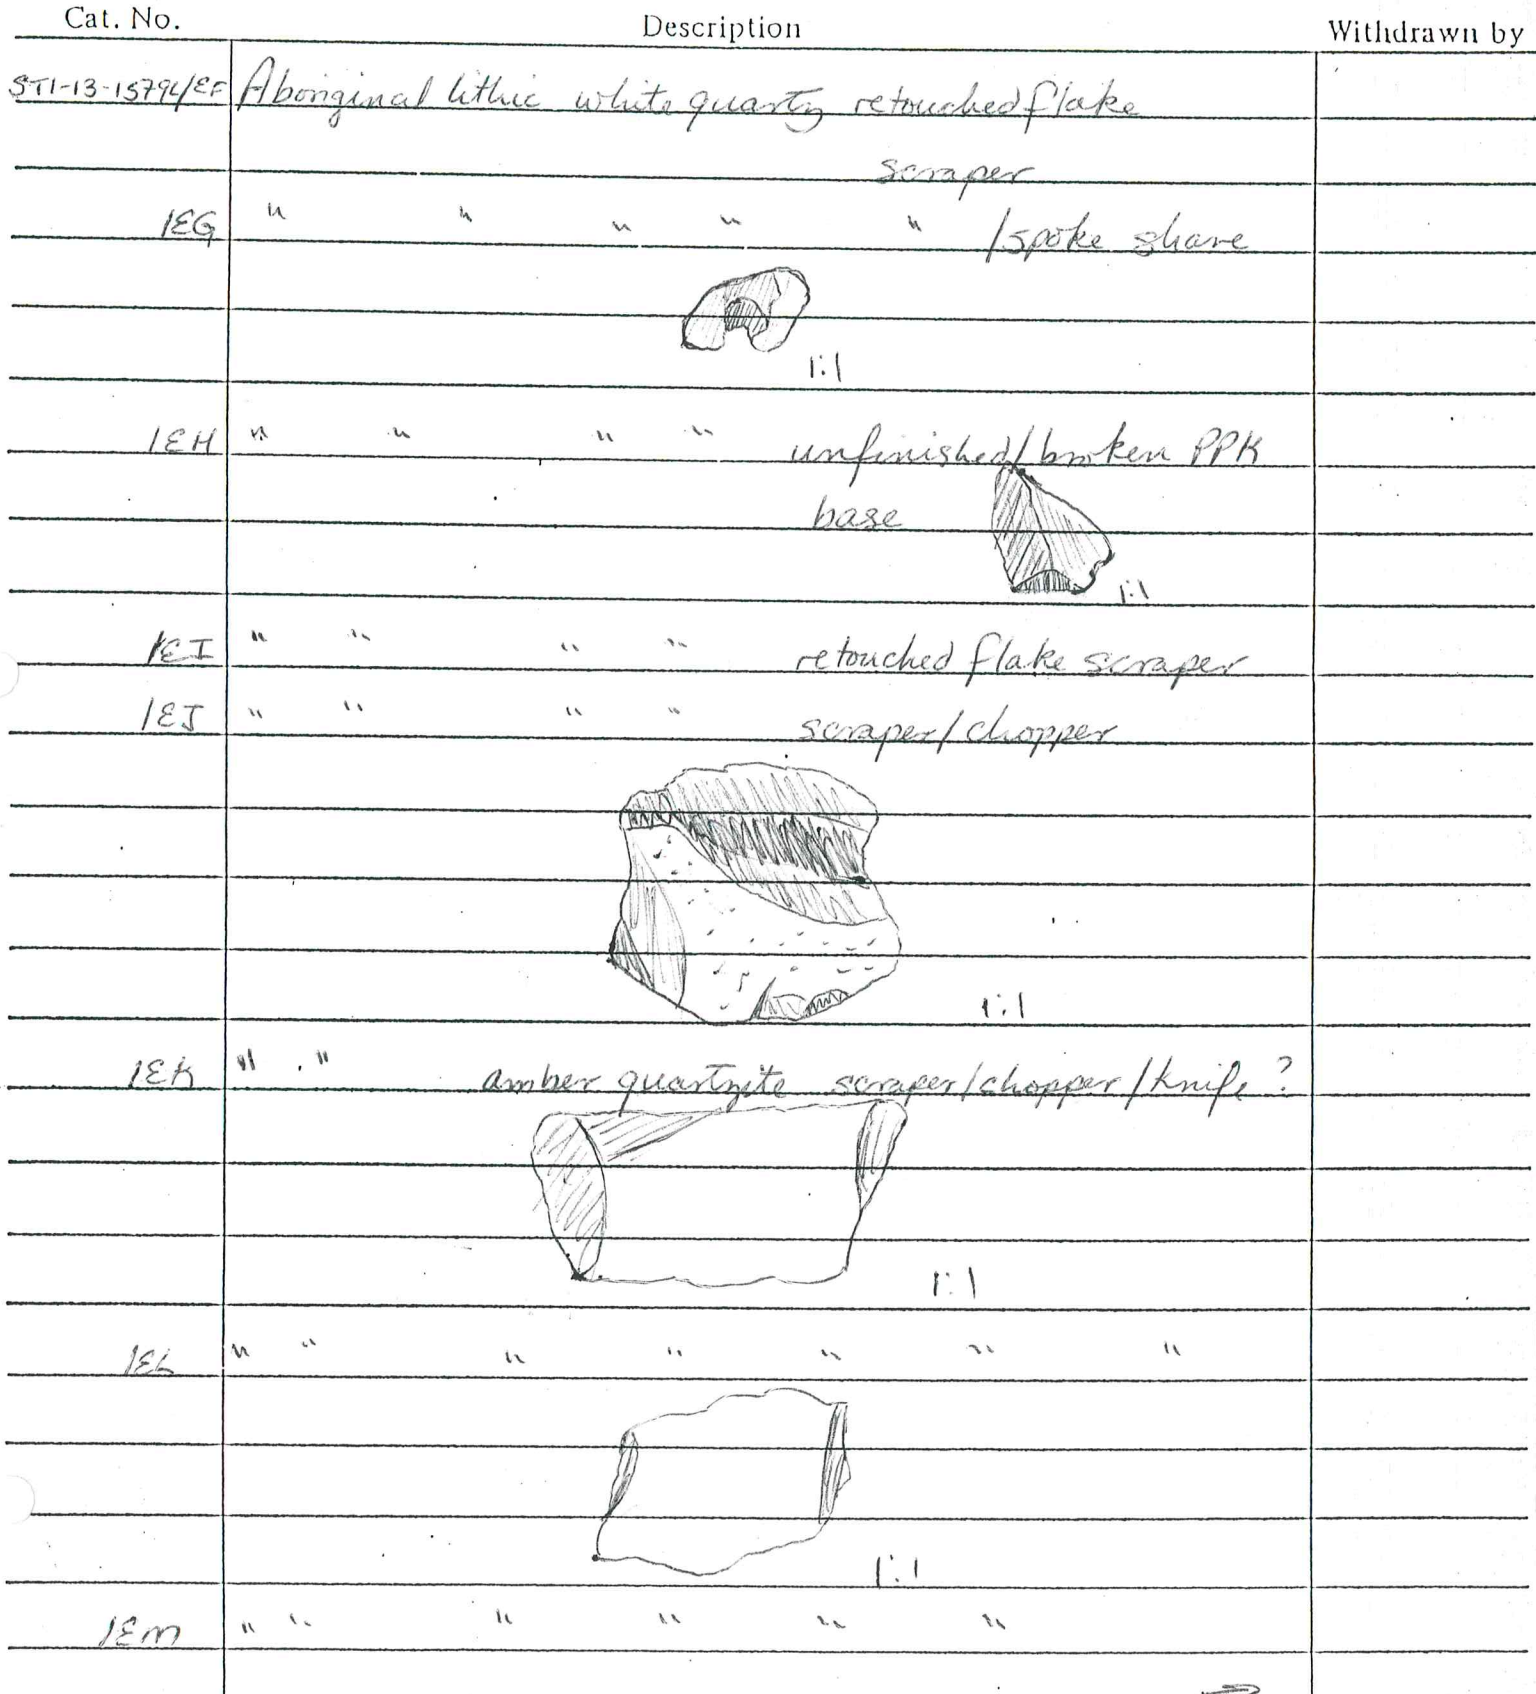 Cat. No. Description Withdrawn by
ST1-13-1579L/EF Aboriginal lithic white quartz retouched flake
scraper
/EG " " " " " /spoke shave
1:1
/EH " " " " unfinished/broken PPK
base
1:1
/EI " " " " retouched flake scraper
/EJ " " " " scraper/chopper
1:1
/EK " " amber quartzite scraper/chopper/knife?
1:1
/EL " " " " " " "
1:1
/EM " " " " " "